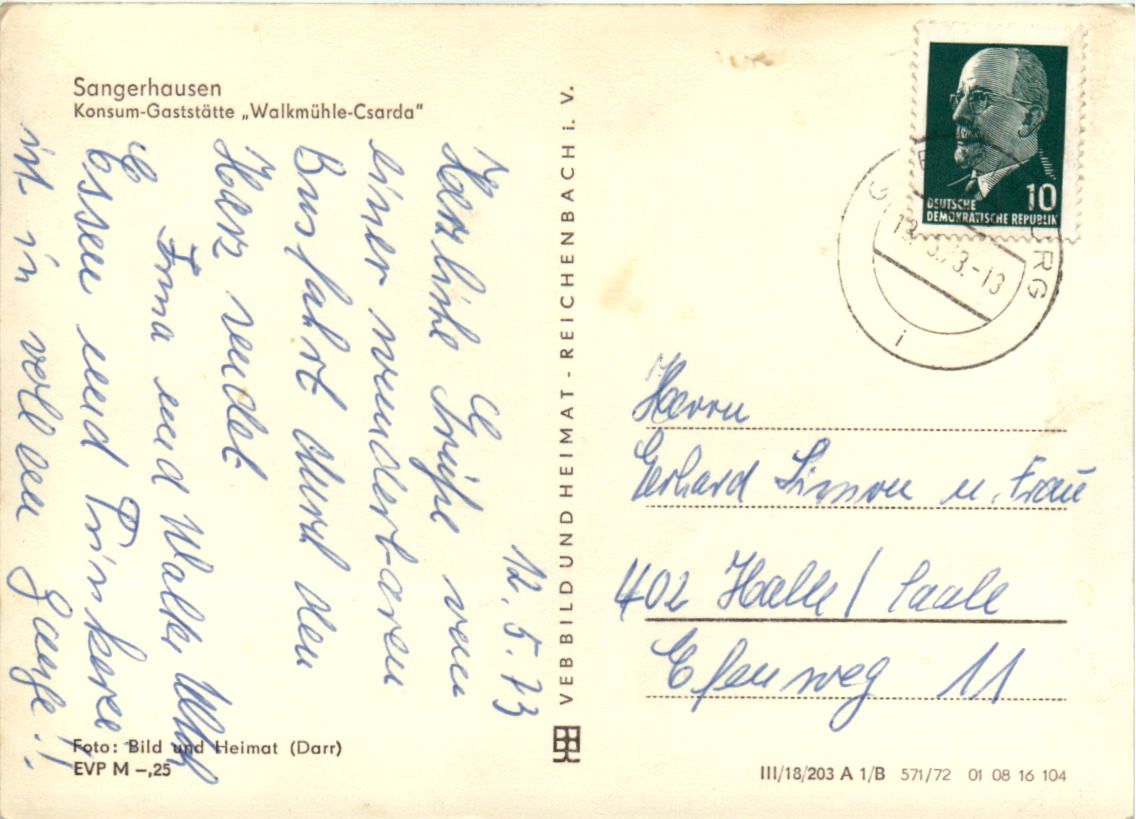 Sangerhausen
Konsum-Gaststätte „Walkmühle-Csarda“
12. 5. 73
Herzliche Grüße von
einer wunderbaren
Busfahrt durch den
Harz sendet
Irma und Walter
Essen und Trinken
ist in vollem Gange!!
Foto: Bild und Heimat (Darr)
EVP M –,25
VEB BILD UND HEIMAT - REICHENBACH i. V.
DEUTSCHE
DEMOKRATISCHE REPUBLIK
10
Herrn
Gerhard Simon u. Frau
402 Halle/Saale
Efeuweg 11
III/18/203 A 1/B 571/72 01 08 16 104